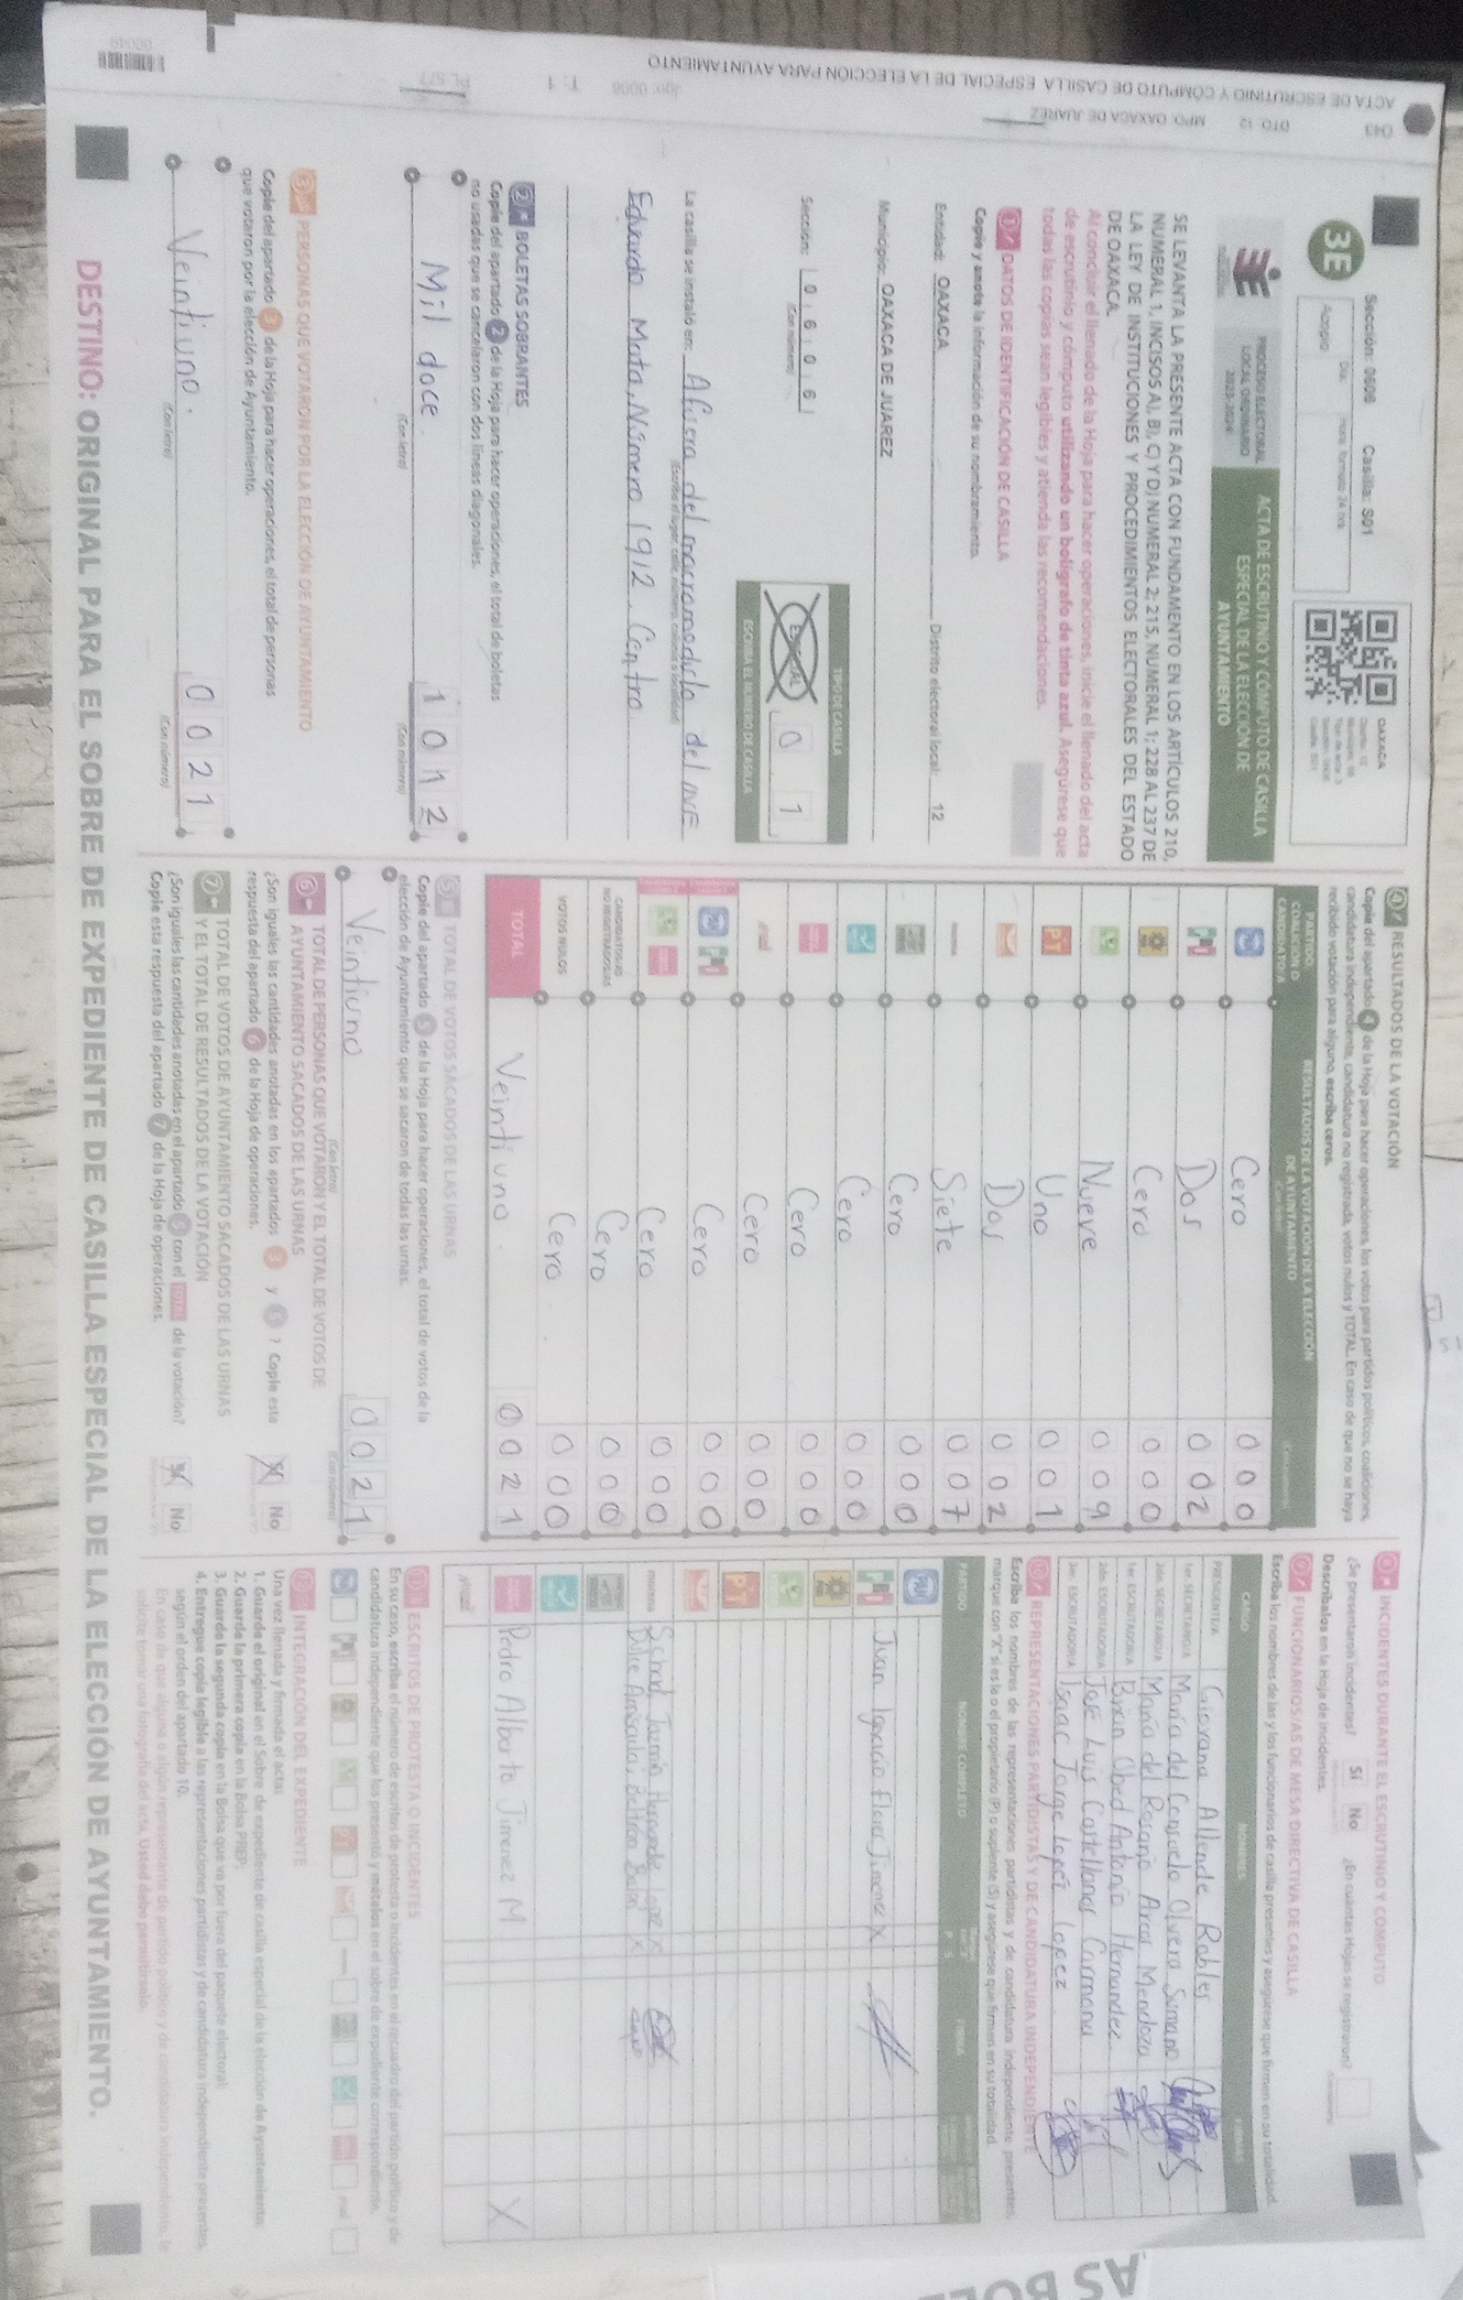 ACTA DE ESCRUTINIO Y CÓMPUTO DE CASILLA ESPECIAL DE LA ELECCIÓN PARA AYUNTAMIENTO
043 DTO: 12 MPO: OAXACA DE JUAREZ
T: 1
Sección: 0606 Casilla: S01
3E
Acopio
Día:
OAXACA
PROCESO ELECTORAL
LOCAL ORDINARIO
2023-2024
ACTA DE ESCRUTINIO Y CÓMPUTO DE CASILLA
ESPECIAL DE LA ELECCIÓN DE
AYUNTAMIENTO
SE LEVANTA LA PRESENTE ACTA CON FUNDAMENTO EN LOS ARTÍCULOS 210,
NUMERAL 1, INCISOS A), B), C) Y D) NUMERAL 2; 215, NUMERAL 1; 228 AL 237 DE
LA LEY DE INSTITUCIONES Y PROCEDIMIENTOS ELECTORALES DEL ESTADO
DE OAXACA.
Al concluir el llenado de la Hoja para hacer operaciones, inicie el llenado del acta
de escrutinio y cómputo utilizando un bolígrafo de tinta azul. Asegúrese que
todas las copias sean legibles y atienda las recomendaciones.
1 DATOS DE IDENTIFICACIÓN DE CASILLA
Copie y anote la información de su nombramiento.
Entidad: OAXACA Distrito electoral local: 12
Municipio: OAXACA DE JUAREZ
Sección: 0 6 0 6
(Con número)
TIPO DE CASILLA
ESPECIAL 0 1
ESCRIBA EL NÚMERO DE CASILLA
La casilla se instaló en: Afuera del macromodulo del INE
(Escriba el lugar, calle, número, colonia o localidad)
Eduardo Mata, Número 1912. Centro
2 BOLETAS SOBRANTES
Copie del apartado 2 de la Hoja para hacer operaciones, el total de boletas
no usadas que se cancelaron con dos líneas diagonales.
Mil doce. 1 0 1 2
(Con letra) (Con número)
3 PERSONAS QUE VOTARON POR LA ELECCIÓN DE AYUNTAMIENTO
Copie del apartado 3 de la Hoja para hacer operaciones, el total de personas
que votaron por la elección de Ayuntamiento.
Veintiuno. 0 0 2 1
(Con letra) (Con número)
4 RESULTADOS DE LA VOTACIÓN
Copie del apartado 4 de la Hoja para hacer operaciones, los votos para partidos políticos, coaliciones,
candidatura independiente, candidatura no registrada, votos nulos y TOTAL. En caso de que no se haya
recibido votación para alguno, escriba ceros.
PARTIDO,
COALICIÓN O
CANDIDATO/A
RESULTADOS DE LA VOTACIÓN DE LA ELECCIÓN
DE AYUNTAMIENTO
Cero 0 0 0
Dos 0 0 2
Cero 0 0 0
Nueve 0 0 9
PT Uno 0 0 1
Dos 0 0 2
morena Siete 0 0 7
Cero 0 0 0
Cero 0 0 0
Cero 0 0 0
Cero 0 0 0
Cero 0 0 0
Cero 0 0 0
CANDIDATOS/AS
NO REGISTRADOS/AS Cero 0 0 0
VOTOS NULOS Cero 0 0 0
TOTAL Veintiuno. 0 0 2 1
5 TOTAL DE VOTOS SACADOS DE LAS URNAS
Copie del apartado 5 de la Hoja para hacer operaciones, el total de votos de la
elección de Ayuntamiento que se sacaron de todas las urnas.
Veintiuno 0 0 2 1
(Con letra) (Con número)
6 TOTAL DE PERSONAS QUE VOTARON Y EL TOTAL DE VOTOS DE
AYUNTAMIENTO SACADOS DE LAS URNAS
¿Son iguales las cantidades anotadas en los apartados 3 y 5 ? Copie esta
respuesta del apartado 6 de la Hoja de operaciones. Sí No
7 TOTAL DE VOTOS DE AYUNTAMIENTO SACADOS DE LAS URNAS
Y EL TOTAL DE RESULTADOS DE LA VOTACIÓN
¿Son iguales las cantidades anotadas en el apartado 5 con el TOTAL de la votación?
Copie esta respuesta del apartado 7 de la Hoja de operaciones. Sí No
INCIDENTES DURANTE EL ESCRUTINIO Y CÓMPUTO
¿Se presentaron incidentes? Sí No ¿En cuántas Hojas se registraron?
Descríbalos en la Hoja de incidentes.
FUNCIONARIOS/AS DE MESA DIRECTIVA DE CASILLA
Escriba los nombres de las y los funcionarios de casilla presentes y asegúrese que firmen en su totalidad.
CARGO NOMBRES
PRESIDENTE/A Giovana Allende Robles
1er. SECRETARIO/A María del Consuelo Olvera Somano
2do. SECRETARIO/A María del Rosario Mendoza
1er. ESCRUTADOR/A Obed Antonio Hernandez
2do. ESCRUTADOR/A José Luis Castellanos Carmona
3er. ESCRUTADOR/A Isaac Jorge Lopez Lopez
REPRESENTACIONES PARTIDISTAS Y DE CANDIDATURA INDEPENDIENTE
Escriba los nombres de las representaciones partidistas y de candidatura independiente presentes,
marque con "X" si es la o el propietario (P) o suplente (S) y asegúrese que firmen en su totalidad.
PARTIDO NOMBRE COMPLETO FIRMA
PAN
Juan Ignacio Flores Jimenez X
PT
morena
Pedro Alberto Jimenez M X
ESCRITOS DE PROTESTA O INCIDENTES
En su caso, escriba el número de escritos de protesta o incidentes en el recuadro del partido político y de
candidatura independiente que los presentó y métalos en el sobre de expediente correspondiente.
INTEGRACIÓN DEL EXPEDIENTE
Una vez llenada y firmada el acta:
1. Guarde el original en el Sobre de expediente de casilla especial de la elección de Ayuntamiento;
2. Guarde la primera copia en la Bolsa PREP;
3. Guarde la segunda copia en la Bolsa que va por fuera del paquete electoral;
4. Entregue copia legible a las representaciones partidistas y de candidatura independiente presentes,
según el orden del apartado 10.
DESTINO: ORIGINAL PARA EL SOBRE DE EXPEDIENTE DE CASILLA ESPECIAL DE LA ELECCIÓN DE AYUNTAMIENTO.